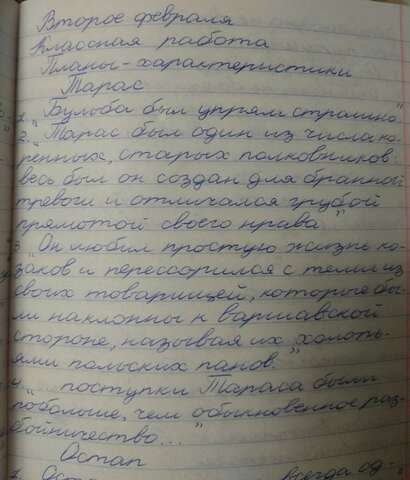 Второе февраля
Классная работа
Планы-характеристики
Тарас
1. "Бульба был упрям страшно"
2. "Тарас был один из числа ко-
ренных, старых полковников:
весь был он создан для бранной
тревоги и отличался грубой
прямотой своего нрава"
3. "Он любил простую жизнь ко-
заков и перессорился с теми из
своих товарищей, которые бы-
ли наклонны к варшавской
стороне, называя их холопь-
ями польских панов."
4. "... поступки Тараса были
побольше, чем обыкновенное раз-
бойничество..."
Остап
1. всегда од-